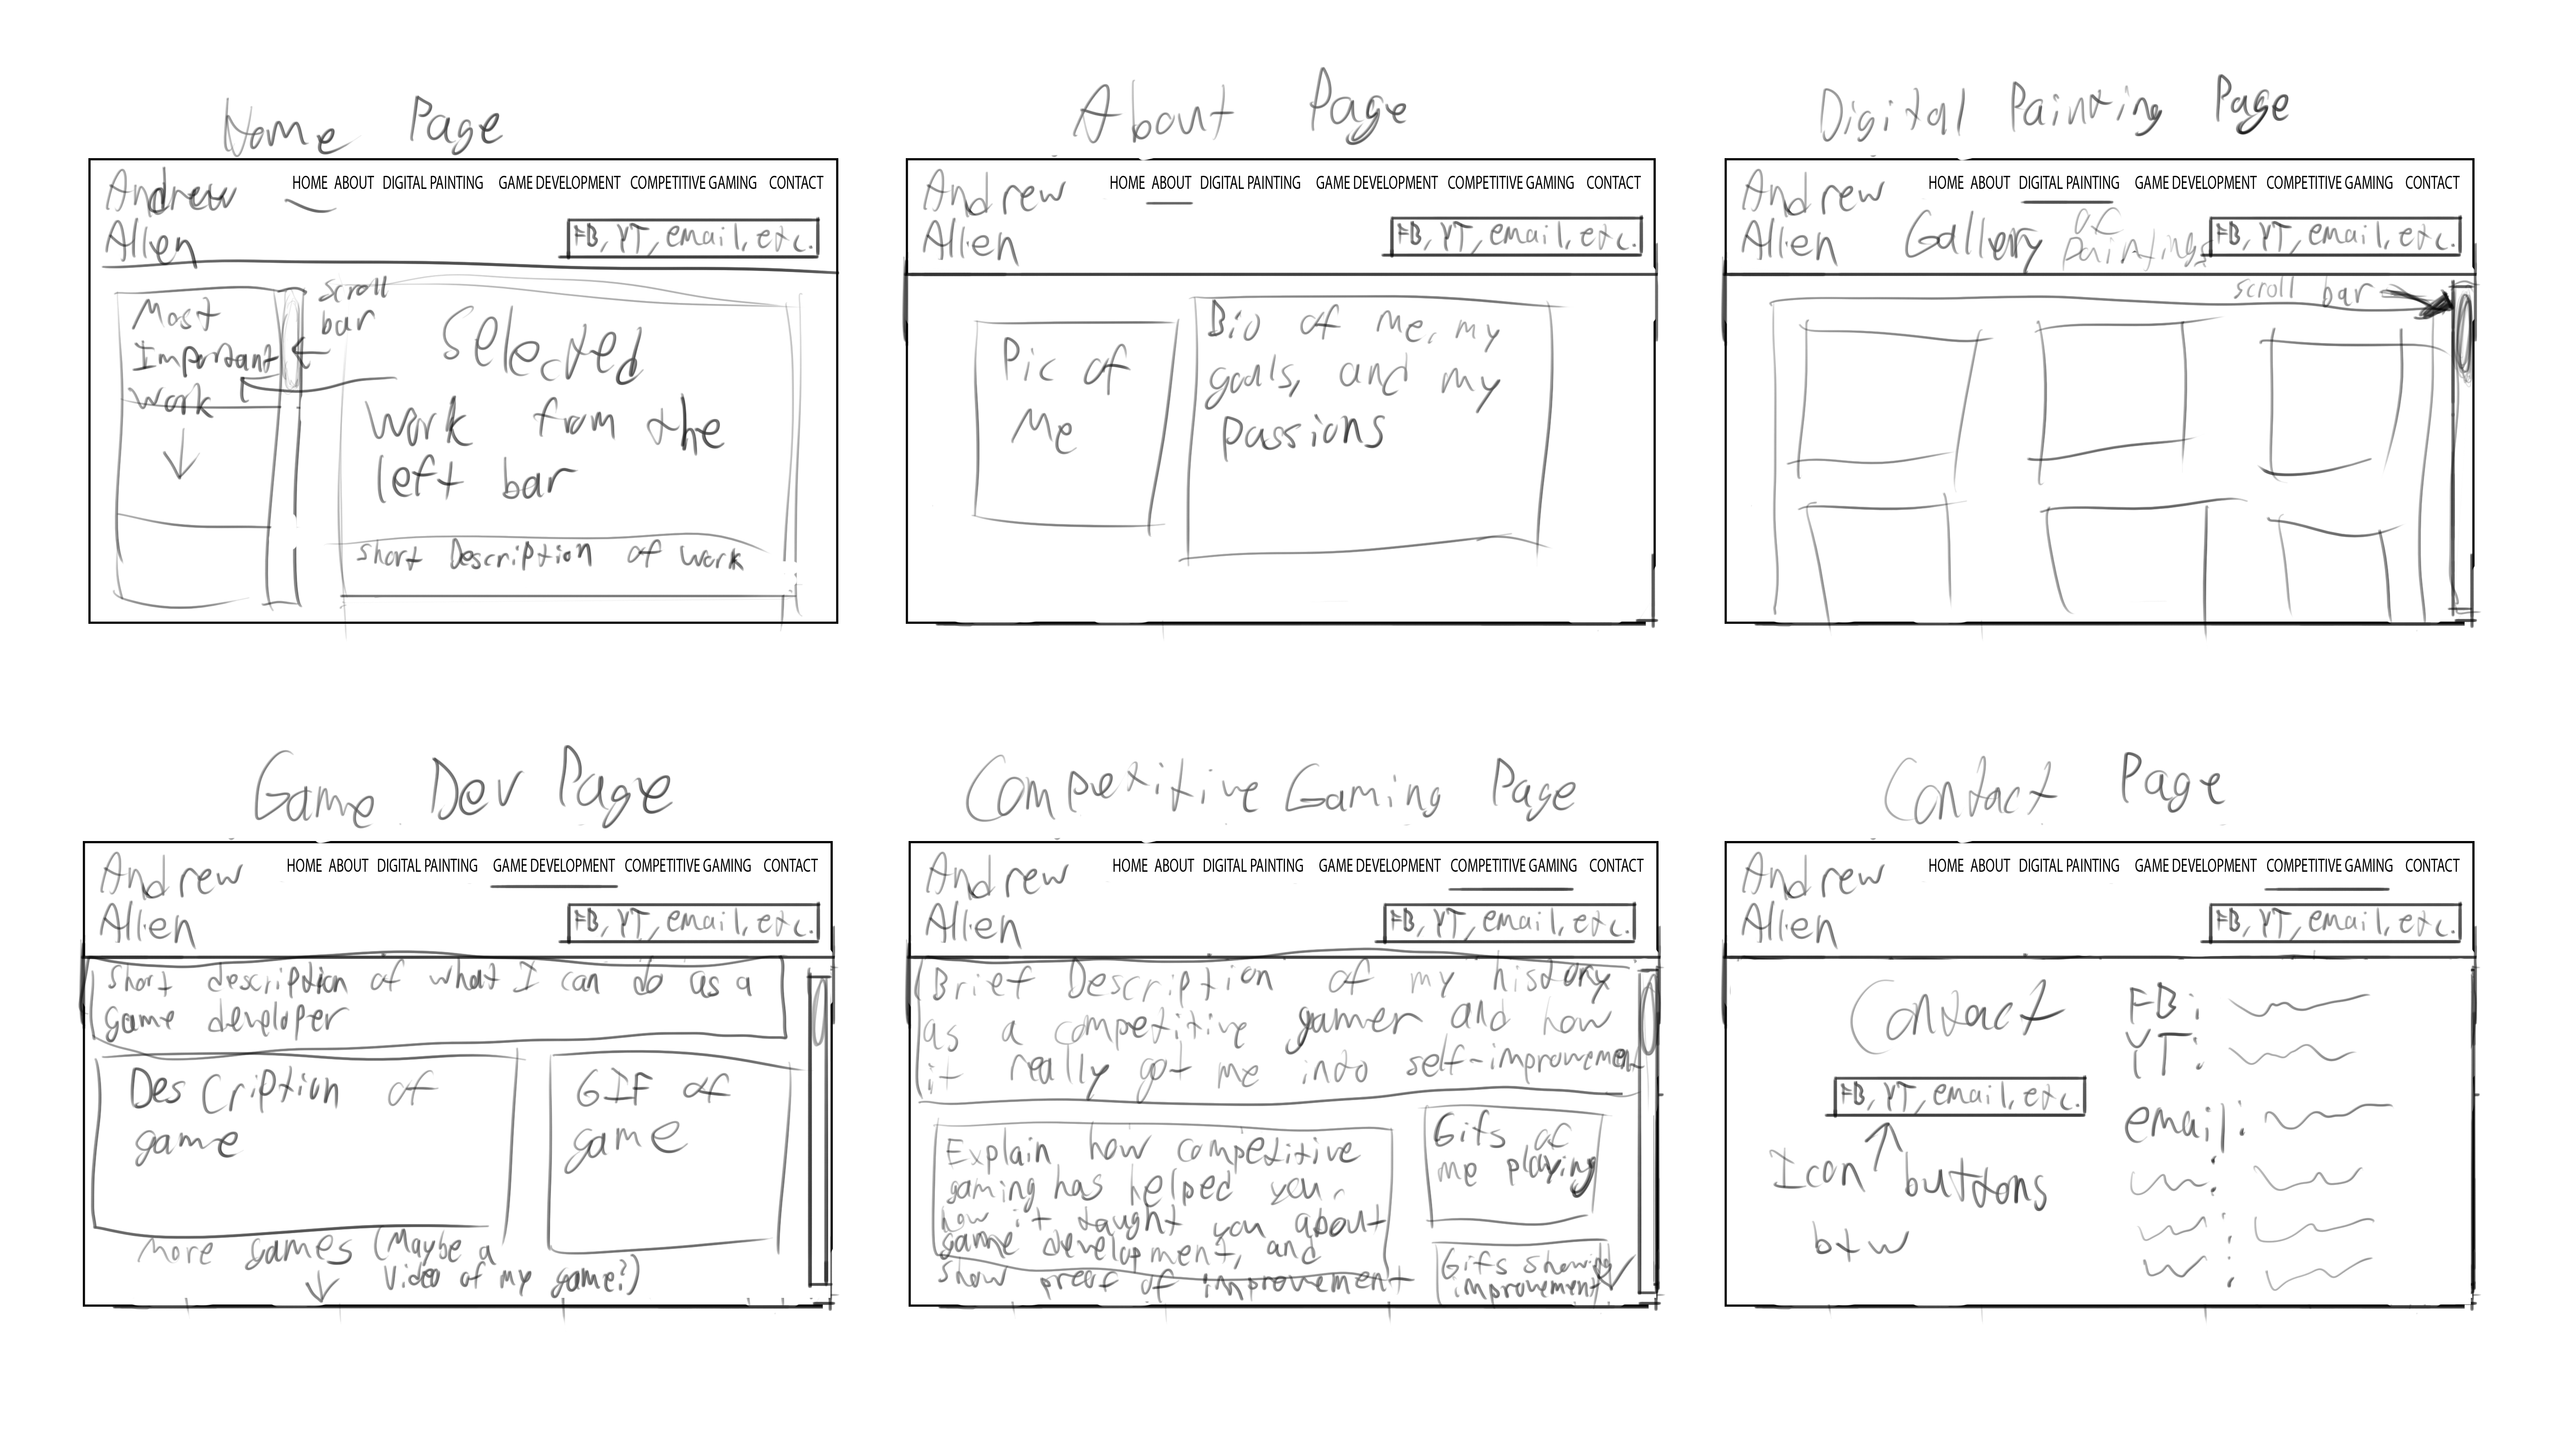 Home Page
Andrew
Allen
HOME ABOUT DIGITAL PAINTING GAME DEVELOPMENT COMPETITIVE GAMING CONTACT
FB, YT, email, etc.
Most
Important
work
scroll
bar
Selected
work from the
left bar
short Description of work
About Page
Andrew
Allen
HOME ABOUT DIGITAL PAINTING GAME DEVELOPMENT COMPETITIVE GAMING CONTACT
FB, YT, email, etc.
Pic of
Me
Bio of me, my
goals, and my
passions
Digital Painting Page
Andrew
Allen
HOME ABOUT DIGITAL PAINTING GAME DEVELOPMENT COMPETITIVE GAMING CONTACT
Gallery of
paintings
FB, YT, email, etc.
scroll bar
Game Dev Page
Andrew
Allen
HOME ABOUT DIGITAL PAINTING GAME DEVELOPMENT COMPETITIVE GAMING CONTACT
FB, YT, email, etc.
short description of what I can do as a
game developer
Description of
game
GIF of
game
more games (Maybe a
video of my game?)
Competitive Gaming Page
Andrew
Allen
HOME ABOUT DIGITAL PAINTING GAME DEVELOPMENT COMPETITIVE GAMING CONTACT
FB, YT, email, etc.
Brief Description of my history
as a competitive gamer and how
it really got me into self-improvement
Explain how competitive
gaming has helped you,
how it taught you about
game development, and
show proof of improvement
Gifs of
me playing
Gifs showing
improvement
Contact Page
Andrew
Allen
HOME ABOUT DIGITAL PAINTING GAME DEVELOPMENT COMPETITIVE GAMING CONTACT
FB, YT, email, etc.
Contact
FB, YT, email, etc.
Icon buttons
btw
FB:
YT:
email: